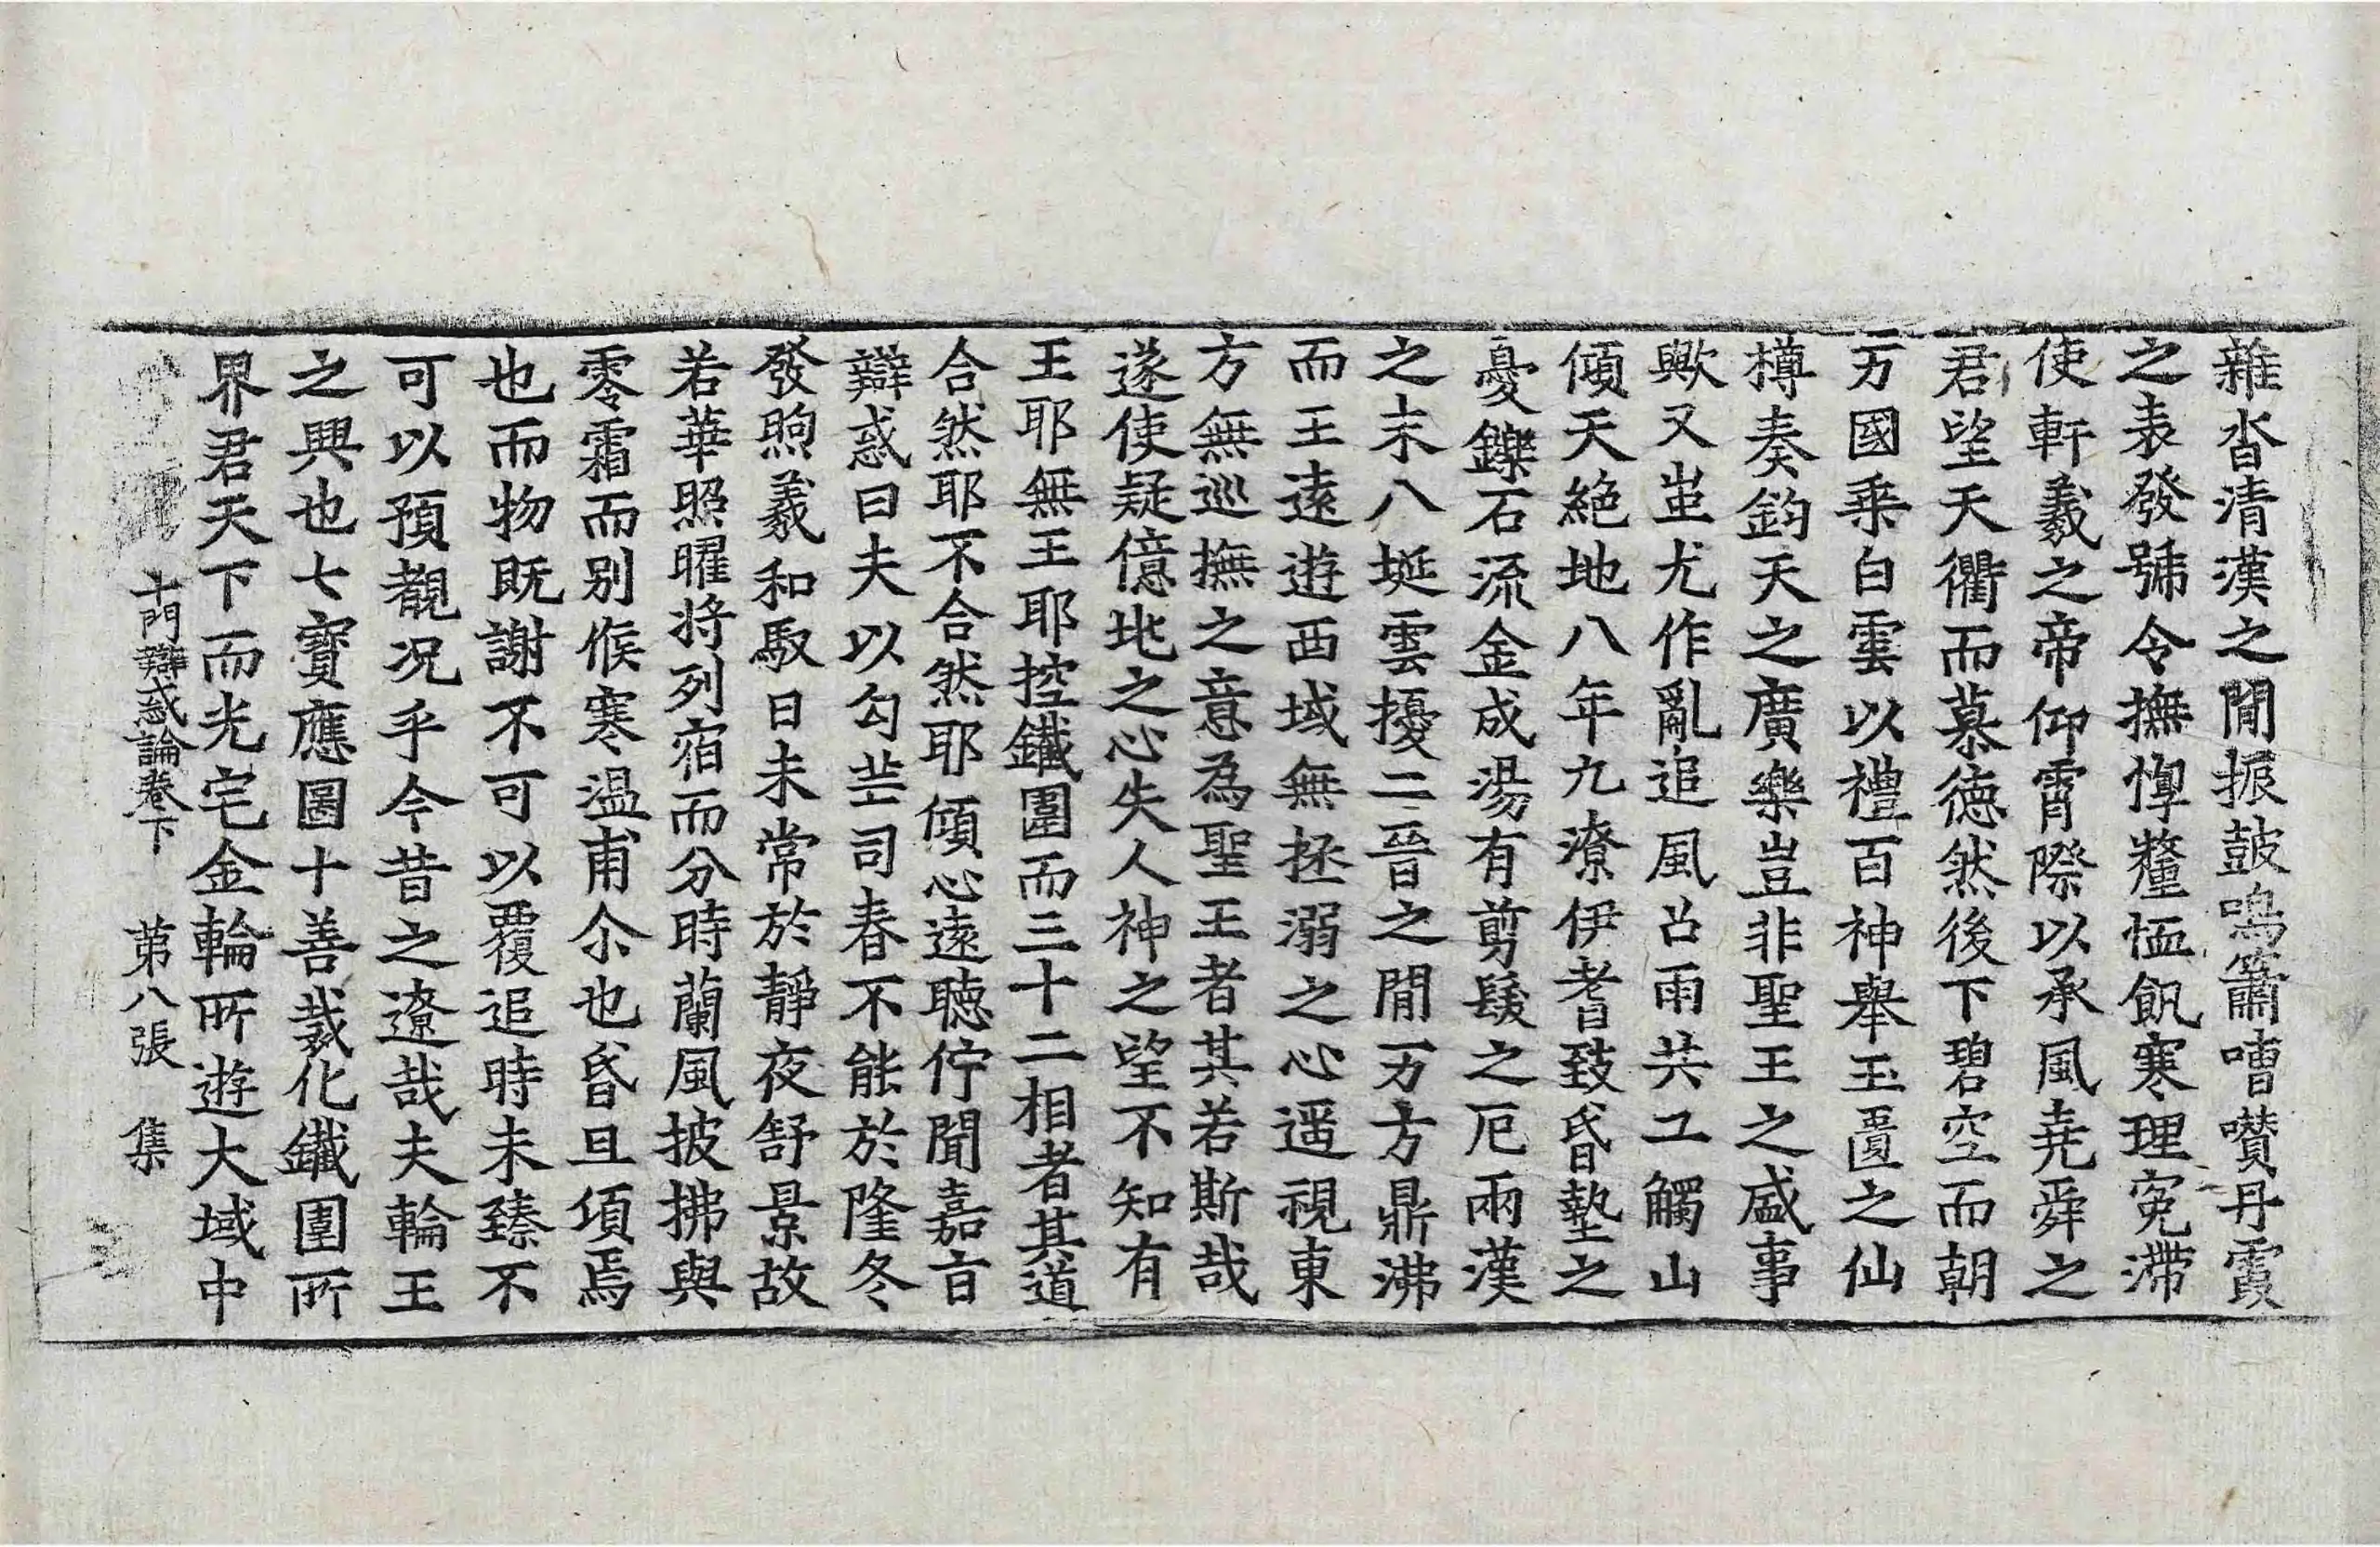 雜沓清漢之閒振鼓鳴簫嘈囋丹霞
之表發號令撫惸釐恤飢寒理寃滯
使軒羲之帝仰霄際以承風堯舜之
君望天衢而慕德然後下碧空而朝
万國乗白雲以禮百神舉玉匱之仙
樽奏鈞天之廣樂豈非聖王之盛事
歟又蚩尤作亂追風召雨共工觸山
傾天絶地八年九潦伊耆致昏墊之
憂鑠石流金成湯有剪髮之厄兩漢
之末八埏雲擾二晉之閒万方鼎沸
而王遠遊西域無拯溺之心遥視東
方無巡撫之意為聖王者其若斯哉
遂使疑億地之心失人神之望不知有
王耶無王耶控鐵圍而三十二相者其道
合然耶不合然耶傾心遠聴佇聞嘉旨
辯惑曰夫以勾芒司春不能於隆冬
發煦羲和馭日未常於靜夜舒景故
若華照曜將列宿而分時蘭風披拂與
零霜而别候寒温甫尒也昏旦湏焉
也而物既謝不可以覆追時未臻不
可以預覩况乎今昔之遼哉夫輪王
之興也七寳應圖十善裁化鐵圍所
界君天下而光宅金輪所遊大域中
十門辯惑論卷下　第八張　集